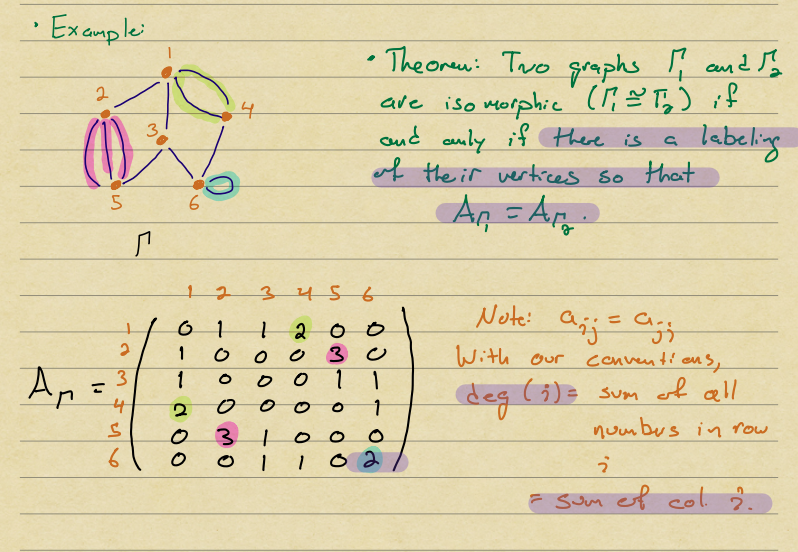 • Example:
1
2
4
3
5
6
Γ
• Theorem: Two graphs Γ₁ and Γ₂
are isomorphic (Γ₁ ≅ Γ₂) if
and only if there is a labeling
of their vertices so that
A_Γ₁ = A_Γ₂.
1 2 3 4 5 6
A_Γ =
1 0 1 1 2 0 0
2 1 0 0 0 3 0
3 1 0 0 0 1 1
4 2 0 0 0 0 1
5 0 3 1 0 0 0
6 0 0 1 1 0 2
Note: a_ij = a_jj
With our conventions,
deg (i) = sum of all
numbers in row
i
= sum of col. i.